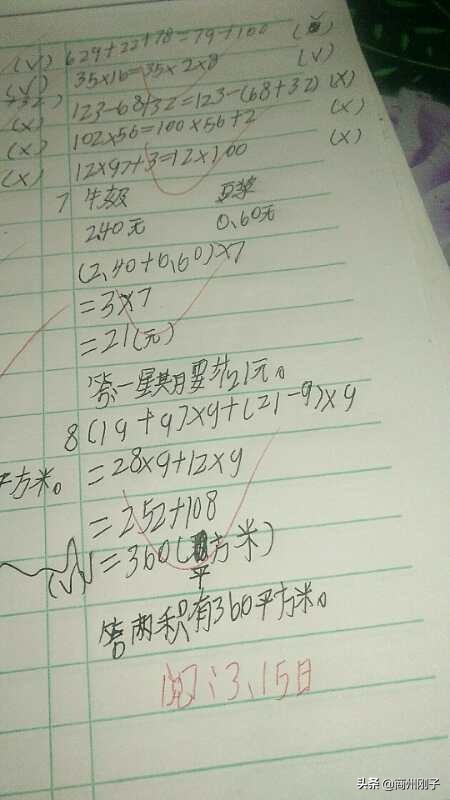 (V) 629+22+78=79+100 (V)
(V) 35×16=35×2×8 (V)
(X) 123-68+32=123-(68+32) (X)
(X) 102×56=100×56+2 (X)
(X) 12×97+3=12×100 (X)
7 牛奶 豆浆
2.40元 0.60元
(2.40+0.60)×7
=3×7
=21(元)
答:一星期要付21元。
8 (19+9)×9+(21-9)×9
平方米。 =28×9+12×9
=252+108
(V) =360(平方米)
答:面积有360平方米。
阅 3.15日
头条 @商州刚子